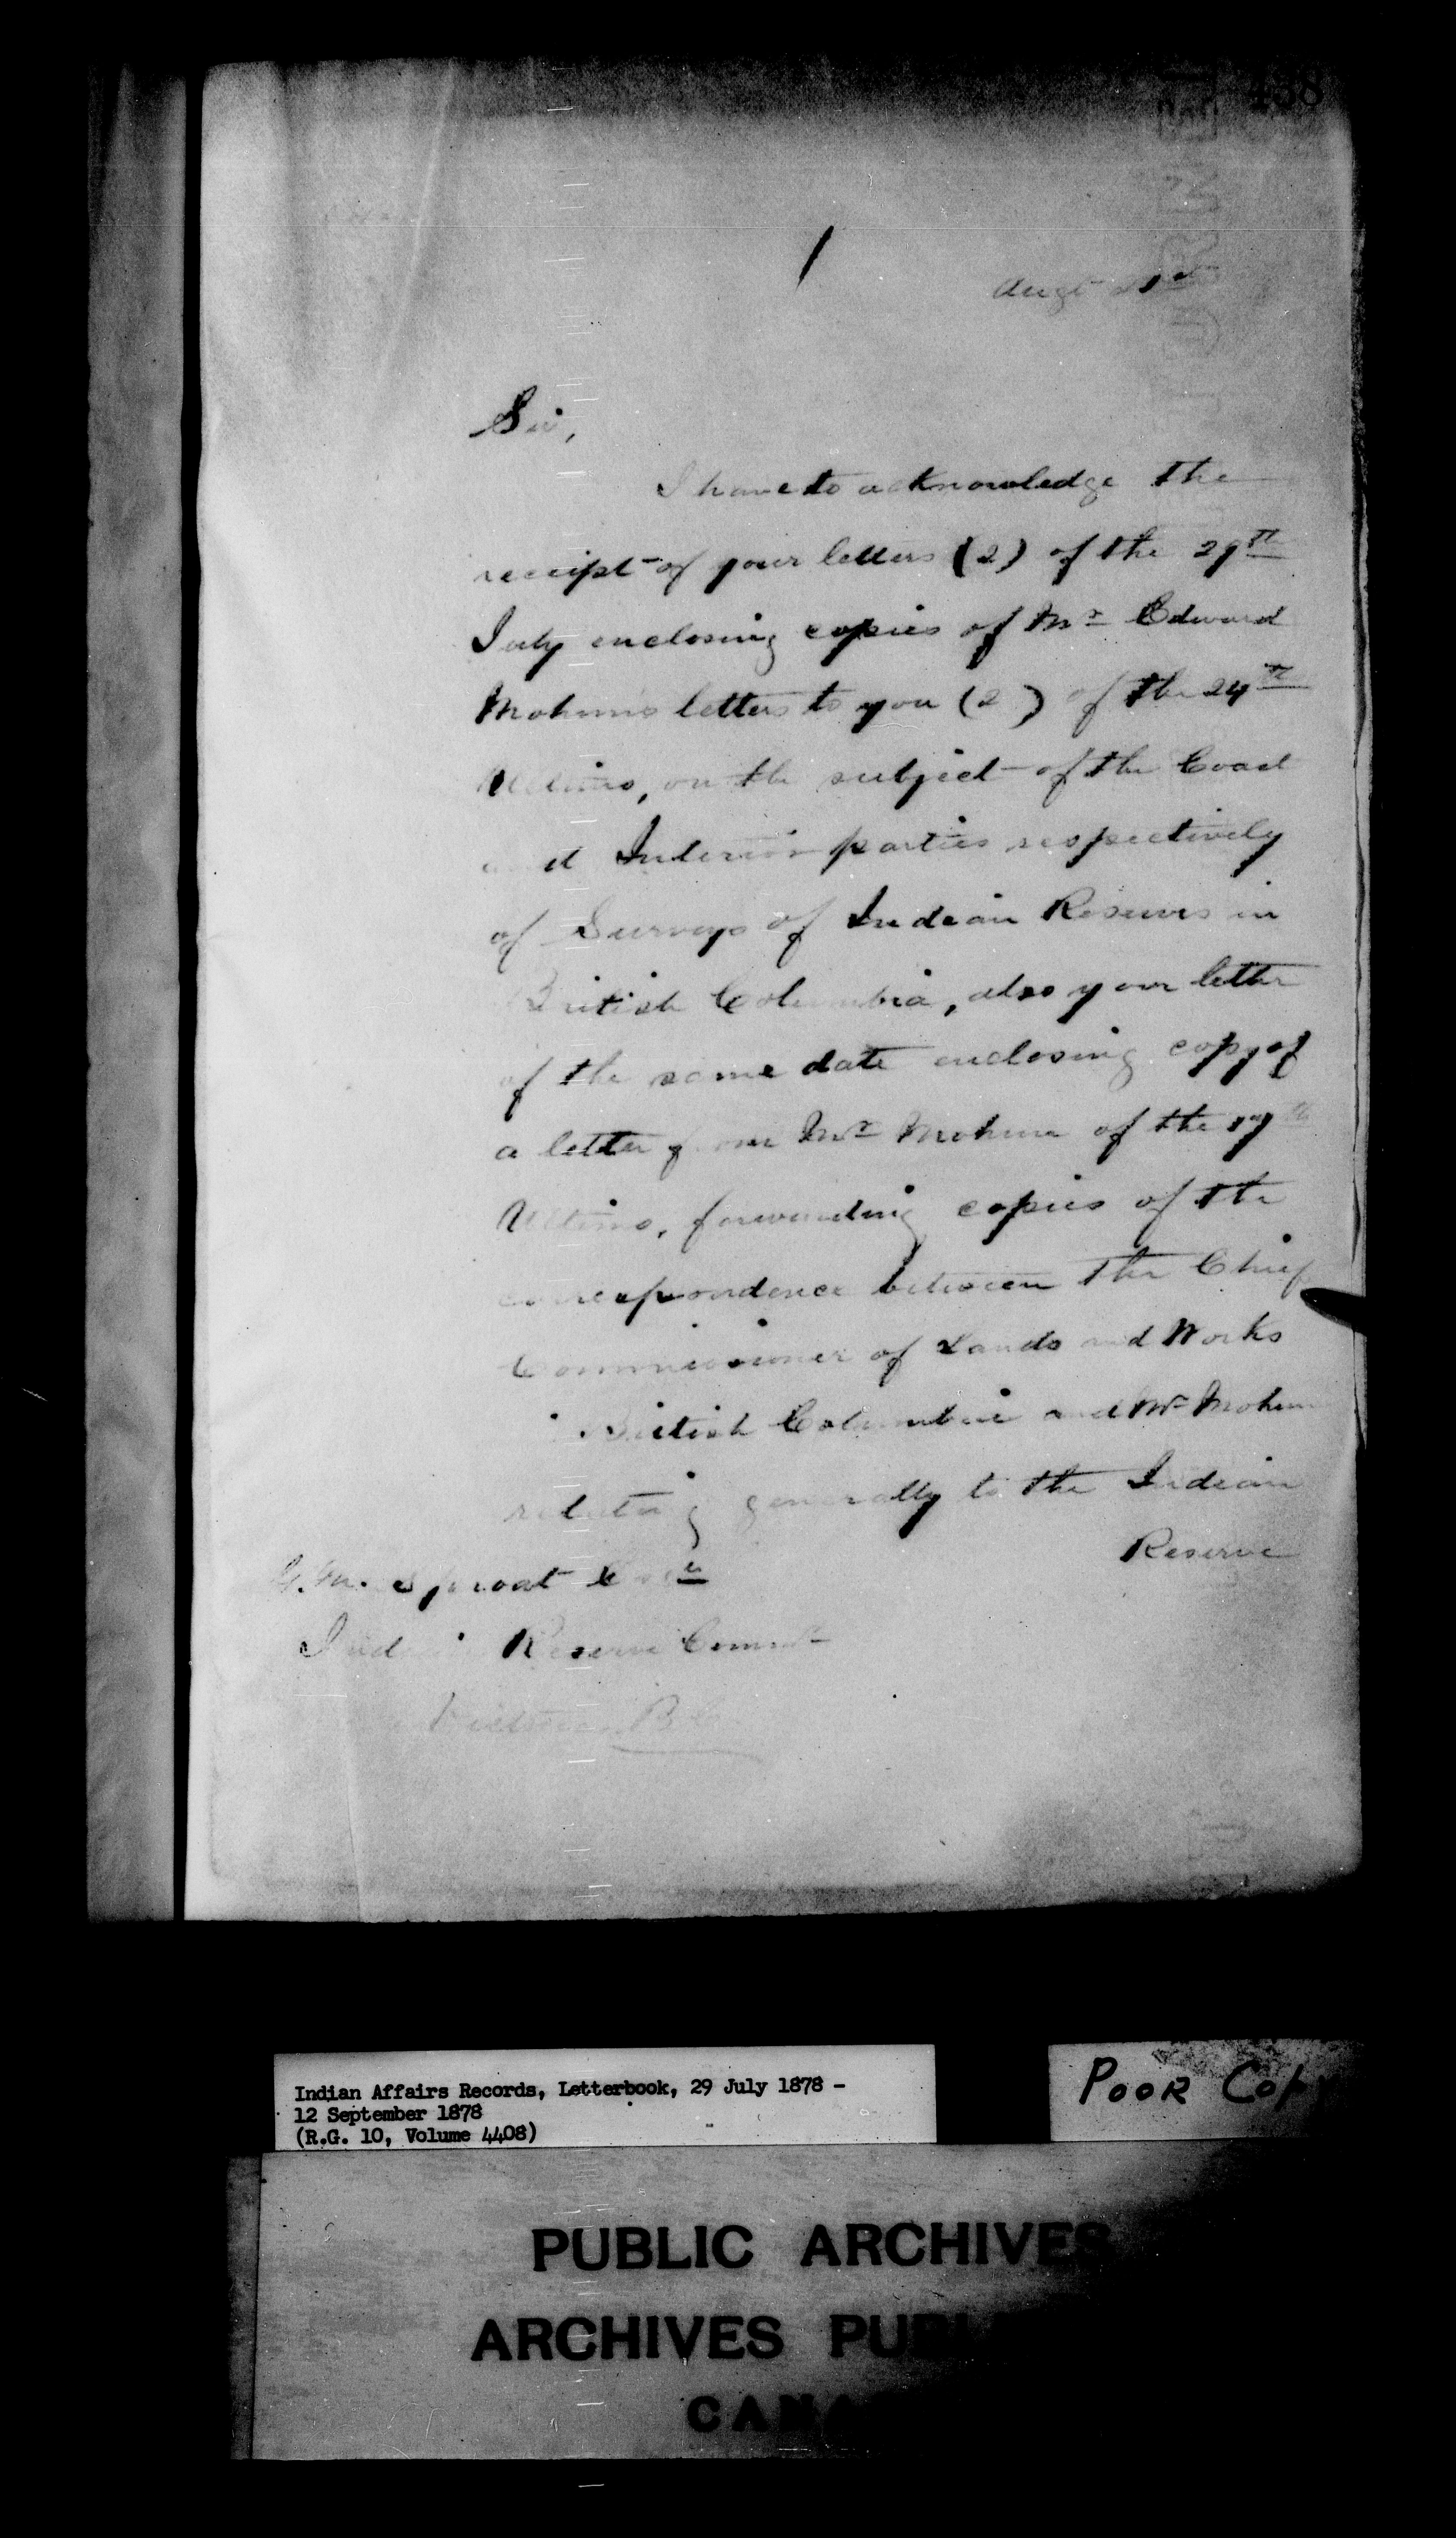 458
Augt 21st
Sir,
I have to acknowledge the
receipt of your letters (2) of the 29th
July enclosing copies of Mr Edward
Mohun's letters to you (2) of the 24th
Ultimo, on the subject of the Coast
and Interior parties respectively
of Surveys of Indian Reserves in
British Columbia, also your letter
of the same date enclosing copy of
a letter from Mr Mohun of the 17th
Ultimo, forwarding copies of the
correspondence between the Chief
Commissioner of Lands and Works
British Columbia and Mr Mohun
relating generally to the Indian
Reserve
G.M. Sproat Esqre
Indian Reserve Commr
Victoria B.C.
Indian Affairs Records, Letterbook, 29 July 1878 -
12 September 1878
(R.G. 10, Volume 4408)
POOR Copy
PUBLIC ARCHIVES
ARCHIVES PUBL
CANA